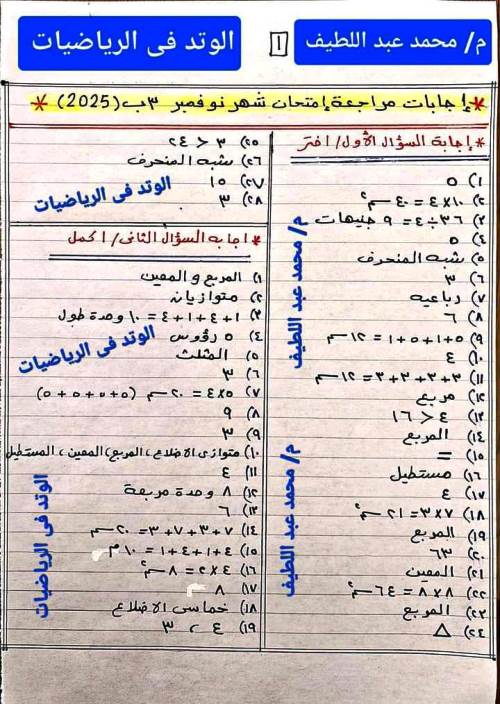 م/ محمد عبد اللطيف
1
الوتد فى الرياضيات
* إجابات مراجعة إمتحان شهر نوفمبر ٣ب (2025) *
* إجابة السؤال الأول/ اختر
١) ٥
٢) ١٠ × ٤ = ٤٠ سم٢
٣) ٣٦ ÷ ٤ = ٩ جنيهات
٤) ٥
٥) شبه المنحرف
٦) ٣
٧) رباعيه
٨) ٦
٩) ٥ + ١ + ٥ + ١ = ١٢ سم
١٠) ٤
١١) ٣ + ٣ + ٣ + ٣ = ١٢ سم
١٢) مربع
١٣) ٤ < ١٦
١٤) المربع
١٥) =
١٦) مستطيل
١٧) ٤
١٨) ٧ × ٣ = ٢١ سم٢
١٩) المربع
٢٠) ٦٣
٢١) المعين
٢٢) ٨ × ٨ = ٦٤ سم٢
٢٣) المربع
٢٤) △
م/ محمد عبد اللطيف
م/ محمد عبد اللطيف
٢٥) ٣ < ٢٤
٢٦) شبه المنحرف
٢٧) ١٥
٢٨) ٣
الوتد فى الرياضيات
* اجابه السؤال الثانى/ اكمل
١) المربع و المعين
٢) متوازيان
٣) ٤ + ١ + ٤ + ١ = ١٠ وحدة طول
٤) ٥ رؤوس
٥) المثلث
٦) ٣
٧) ٥ × ٤ = ٢٠ سم (٥ + ٥ + ٥ + ٥)
٨) ٩
٩) ٣
١٠) متوازى الاضلاع، المربع، المعين، المستطيل
١١) ٤
١٢) ٨ وحدة مربعة
١٣) ٦
١٤) ٧ + ٣ + ٧ + ٣ = ٢٠ سم
١٥) ٤ + ١ + ٤ + ١ = ١٠ م
١٦) ٤ × ٢ = ٨ سم٢
١٧) ٨
١٨) خماسى الاضلاع
١٩) ٤ ، ٣
الوتد فى الرياضيات
الوتد فى الرياضيات